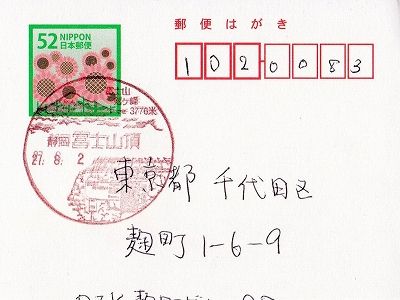 郵便はがき
52 NIPPON
日本郵便
102-0083
富士山
剣ヶ峰
3776米
静岡 富士山頂
27. 8. 2
東京都 千代田区
麹町1-6-9